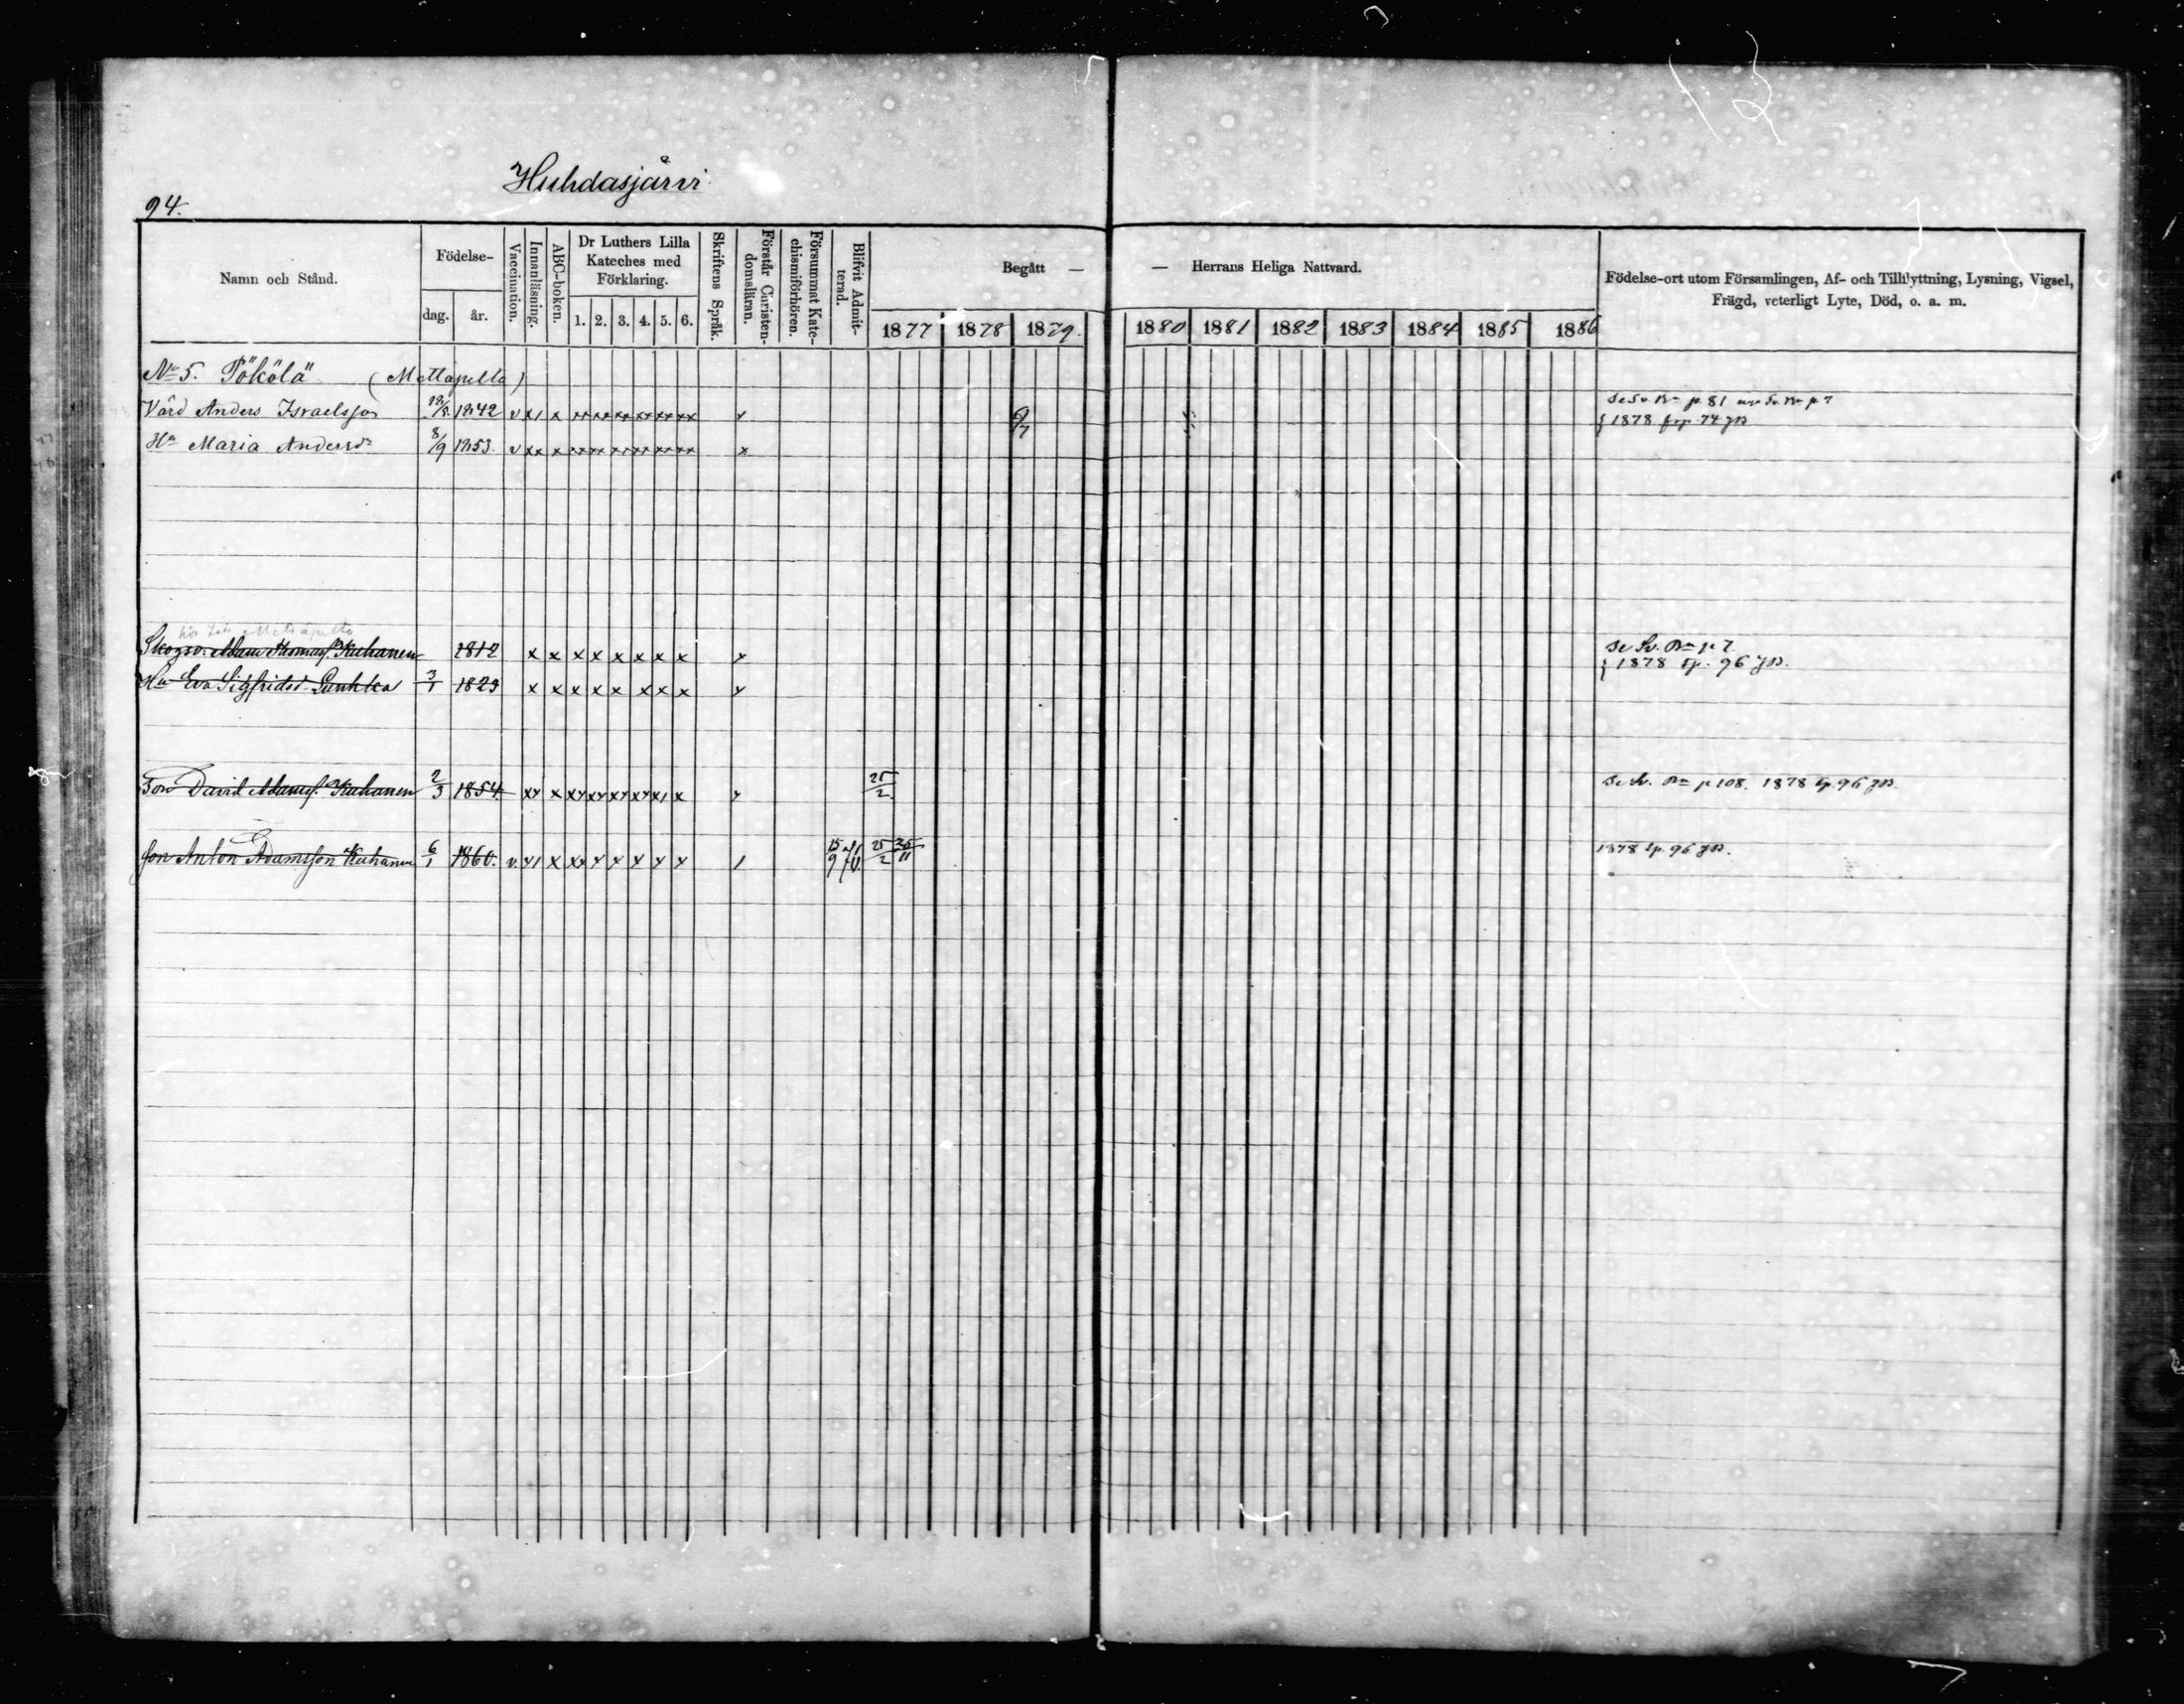 Huhdasjärvi
94.
Namn och Stånd.
Födelse-
dag.
år.
Vaccination.
Innanläsning.
ABC-boken.
Dr Luthers Lilla
Kateches med
Förklaring.
1. 2. 3. 4. 5. 6.
Skriftens Språk.
Förstår Christen-
domsläran.
Försummat Kate-
chismiförhören.
Blifvit Admit-
terad.
Begått — — Herrans Heliga Nattvard.
1877 1878 1879. 1880 1881 1882 1883 1884 1885 1886
Födelse-ort utom Församlingen, Af- och Tillflyttning, Lysning, Vigsel,
Frägd, veterligt Lyte, Död, o. a. m.
No 5. Pökölä (Mettäpelto)
Värd Anders Israelsson 1842 v x x
p. 81 p 7
Hu Maria Andersdr 8/9 1853. v x x x
1878 p. 74
Skogsv. Adam Thomass. Kuhanen 1812 x x x x x x x x
p 7
Hu Eva Sigfridsd. 3/1 1823 x x x x x x x x
1878 p. 96
Son David Adamss. Kuhanen 2/3 1854 25/2
p 108. 1878 p. 96
Son Anton Adamsson Kuhanen 6/1 1860. v. 15/9 76. 25/2 25/11
1878 p. 96